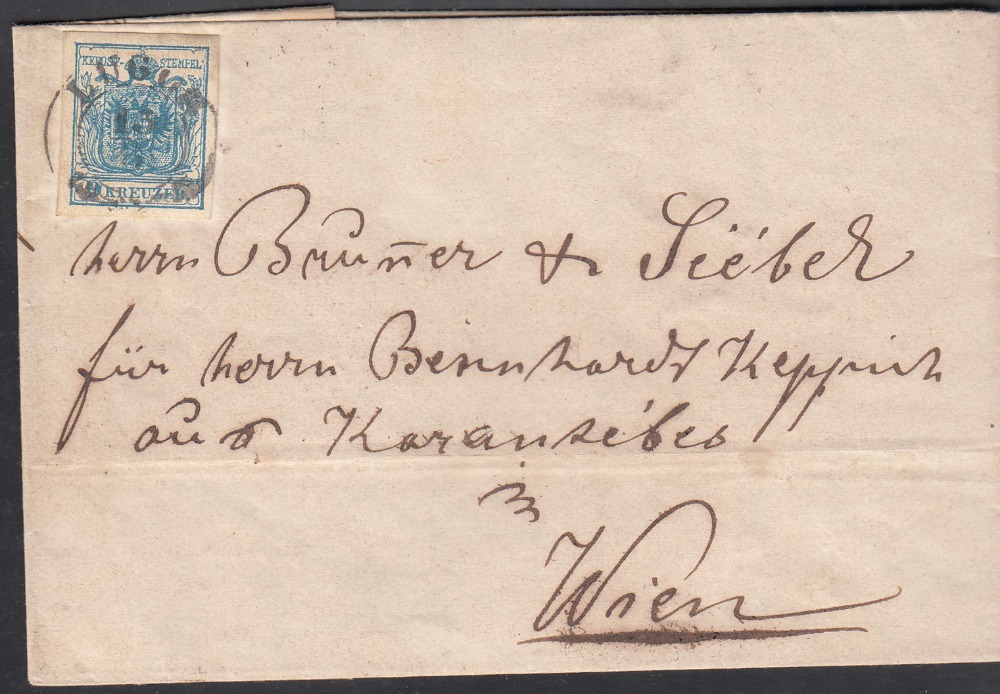 KKPOST-STEMPEL
LUGOS
13
9 KREUZER
herrn Brun̄er & Siébek
für herrn Bernnhardt Keppich
aus Karansébes
in
Wien